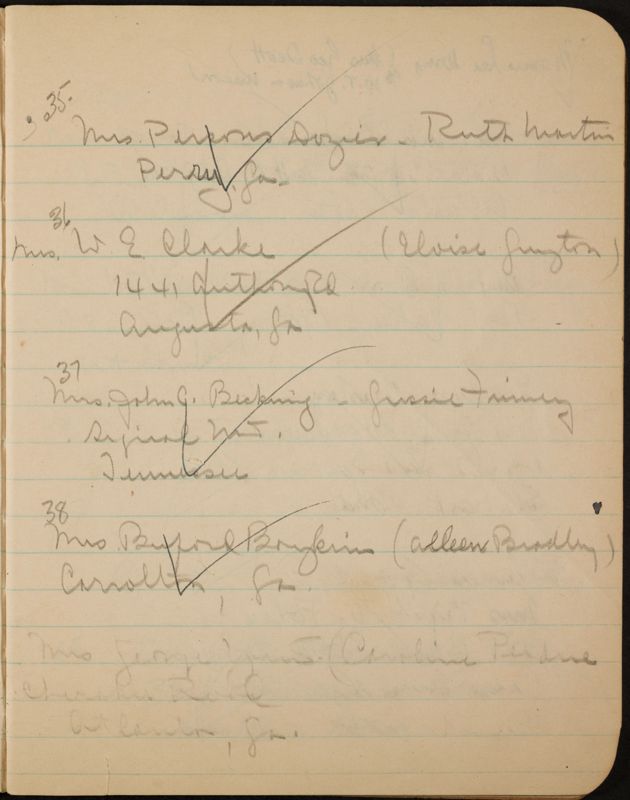 35.
Mrs. Persons Dozier - Ruth Martin
Perry, Ga.
36
Mrs. W. E. Clarke (Eloise Guyton)
1441 Anthony Rd.
Augusta, Ga
37
Mrs. John G. Becking - Gussie Finney
Signal Mt.
Tennessee
38
Mrs. Buford Boykin (Alleen Bradley)
Carrollton, Ga.
Mrs George (Caroline Perdue
Cherokee Road
Atlanta, Ga.